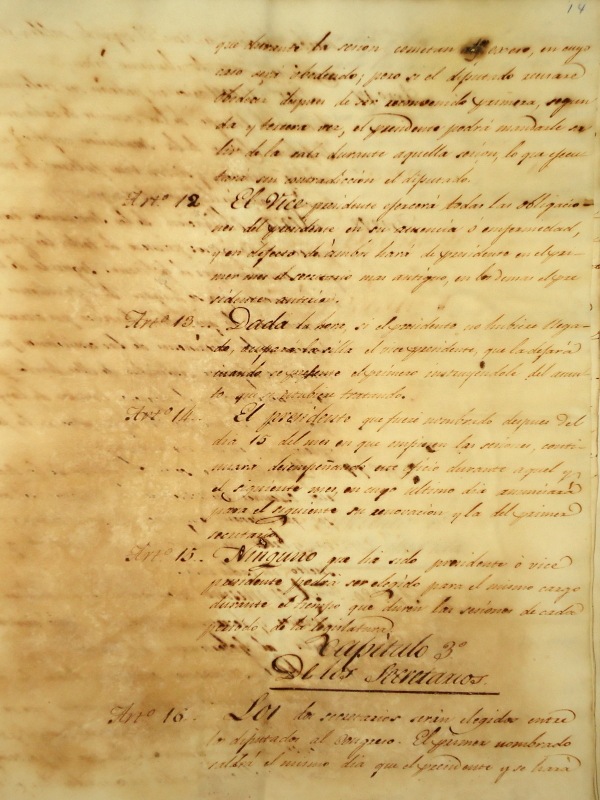 14
que durante la sesion cometan algun exceso, en cuyo
caso será obedecido; pero si el diputado reusare
obedecer despues de ser reconvenido primera, segun-
da y tercera vez, el presidente podrá mandarle sa-
lir de la sala durante aquella sesion, lo que ejecu-
tará sin contradiccion el diputado.
Arto 12 El Vice presidente ejercerá todas las obligacio-
nes del presidente en su ausencia ó enfermedad,
y en defecto de ambos hará de presidente en el pri-
mer mes el secretario mas antiguo, en los demas el pre-
sidente anterior.
Arto 13. Dada la hora, si el presidente no hubiere llega-
do, ocupará la silla el vice presidente, que la dejará
cuando se presente el primero instruyendole del asun-
to que se esté tratando.
Arto 14. El presidente que fuere nombrado despues del
dia 15 del mes en que empiecen las sesiones, conti-
nuará desempeñando ese oficio durante aquel y
el siguiente mes, en cuyo ultimo dia anunciará
para el siguiente su renovacion y la del primer
secretario.
Arto 15. Ninguno que ha sido presidente ó vice
presidente podrá ser elegido para el mismo cargo
durante el tiempo que duren las sesiones de cada
periodo de la legislatura.
Capitulo 3o
De los Secretarios.
Arto 16. Los dos secretarios serán elegidos entre
los diputados al Congreso. El primer nombrado
saldrá el mismo dia que el presidente y se hará